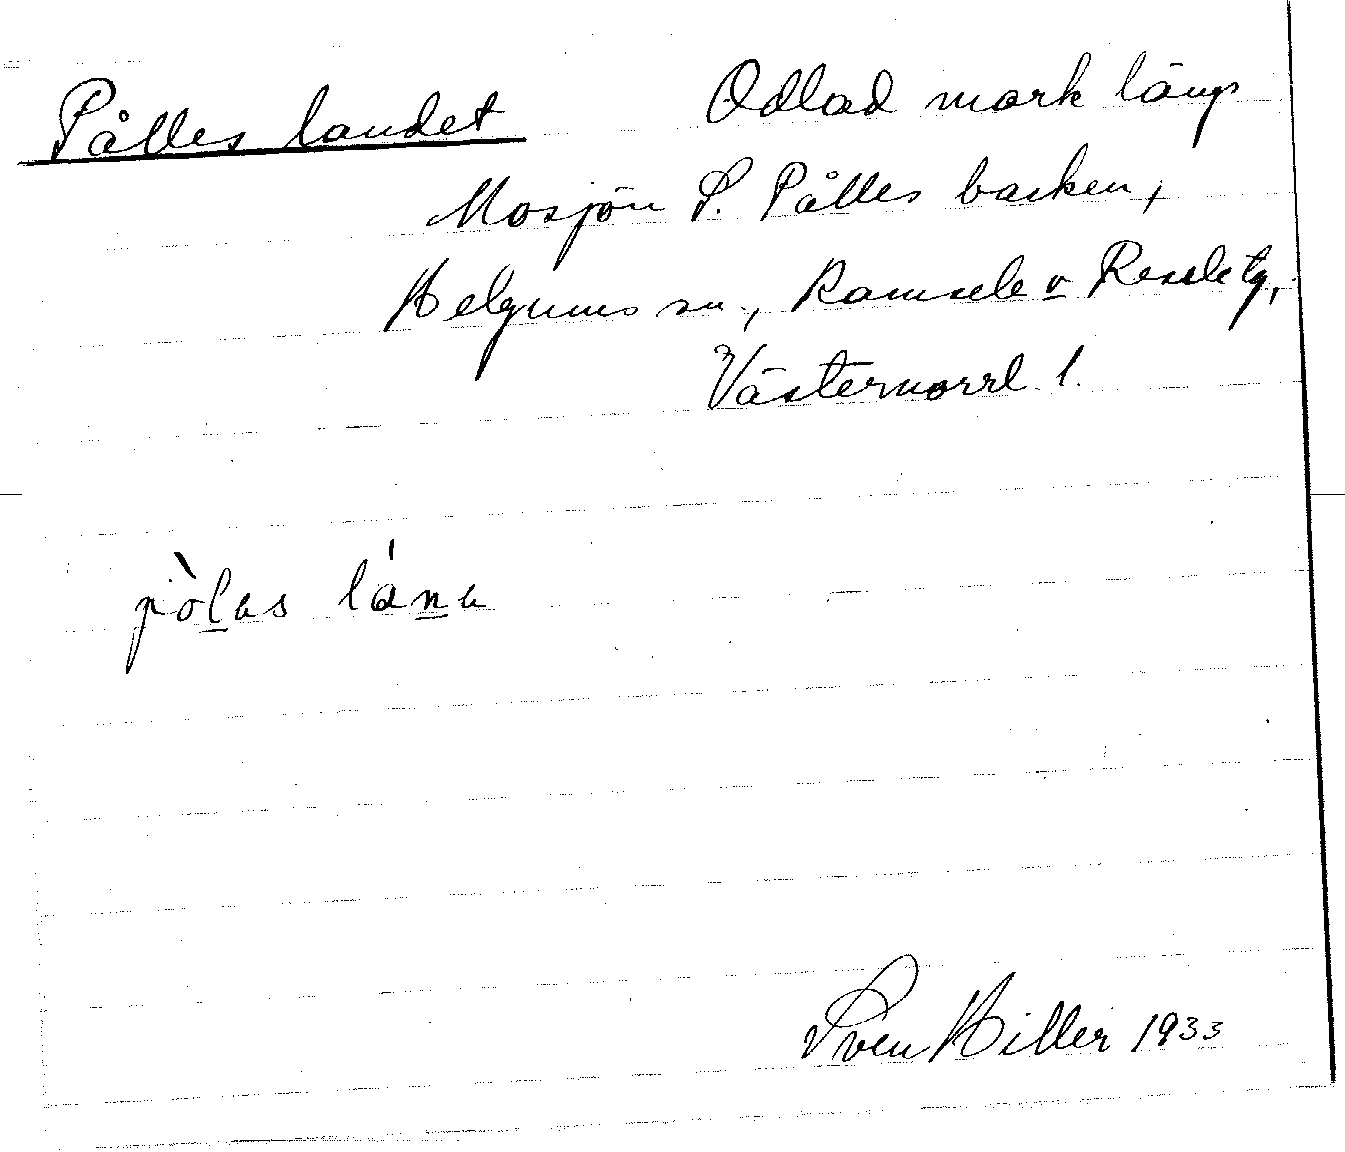 Pålles landet Odlad mark längs
Mosjön S. Pålles backen,
Helgums sn, Ramsele o Resele tg,
Västernorrl l.
pòl̲as lána̲
Sven Hiller 1933